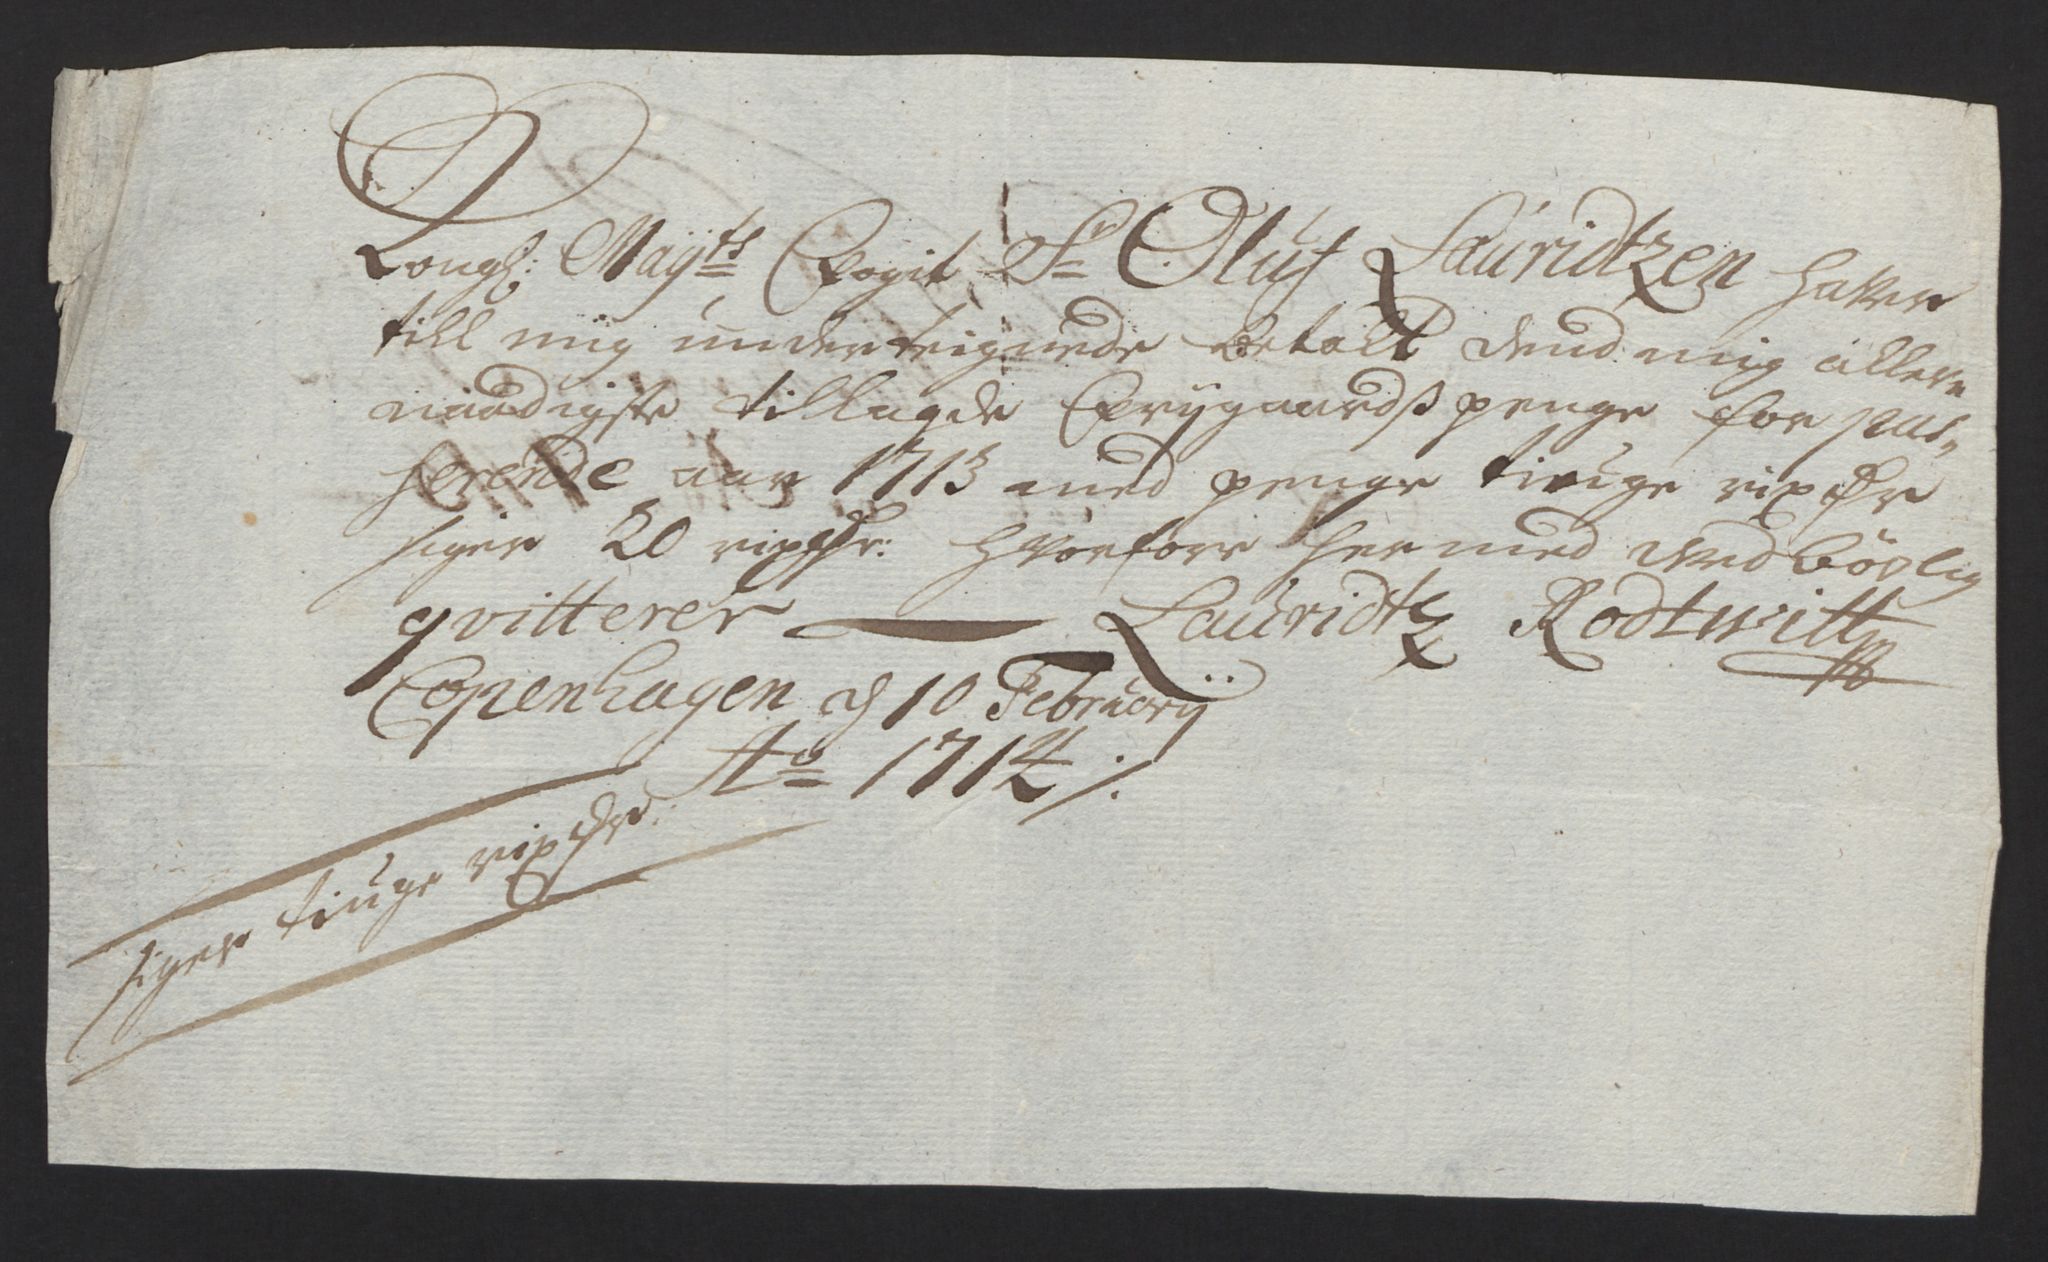 Kongl: Mayts Fogit Sr Oluf Lauridtzen haver
till mig underteignede betalt dend mig aller=
naadigste tillagde Frÿgaardsspenge for pas=
serende aar 1713 med penge tiuge rixdlr
siger 20 rixdlr: hvorfore hermed
qvitterer Lauridtz Rodtwitt
Copenhagen d 10 Februarij
Ao 1714 /:
siger tiuge rixdlr: